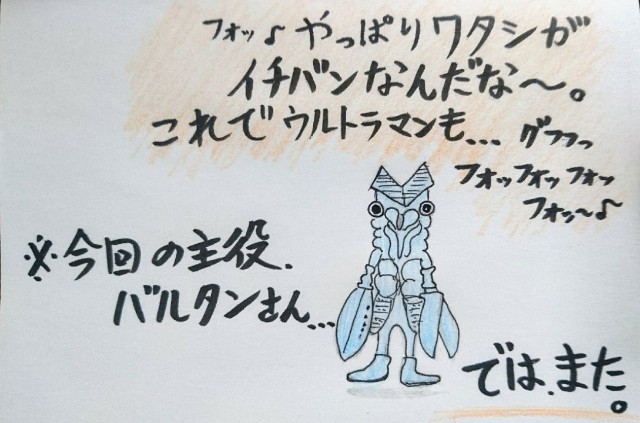 フォッ♪やっぱりワタシが
イチバンなんだな〜。
これでウルトラマンも... グフフっ
フォッフォッフォッ
フォッ〜♪
※今回の主役.
バルタンさん...
では、また。